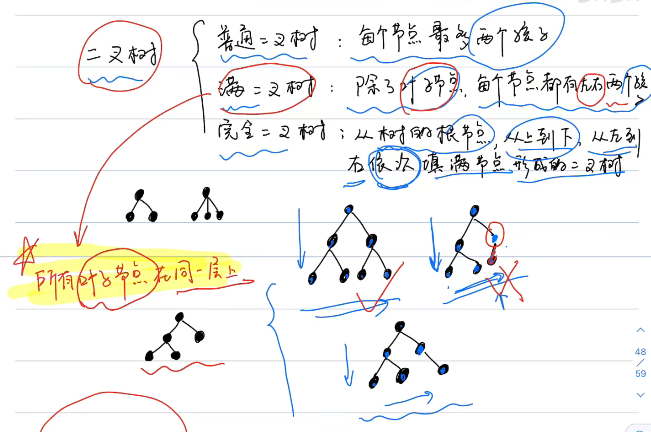 二叉树
普通二叉树：每个节点最多两个孩子
满二叉树：除了叶子节点，每个节点都有左右两个孩
完全二叉树：从树的根节点，从上到下，从左到
右依次填满节点形成的二叉树
所有叶子节点在同一层上
48
59